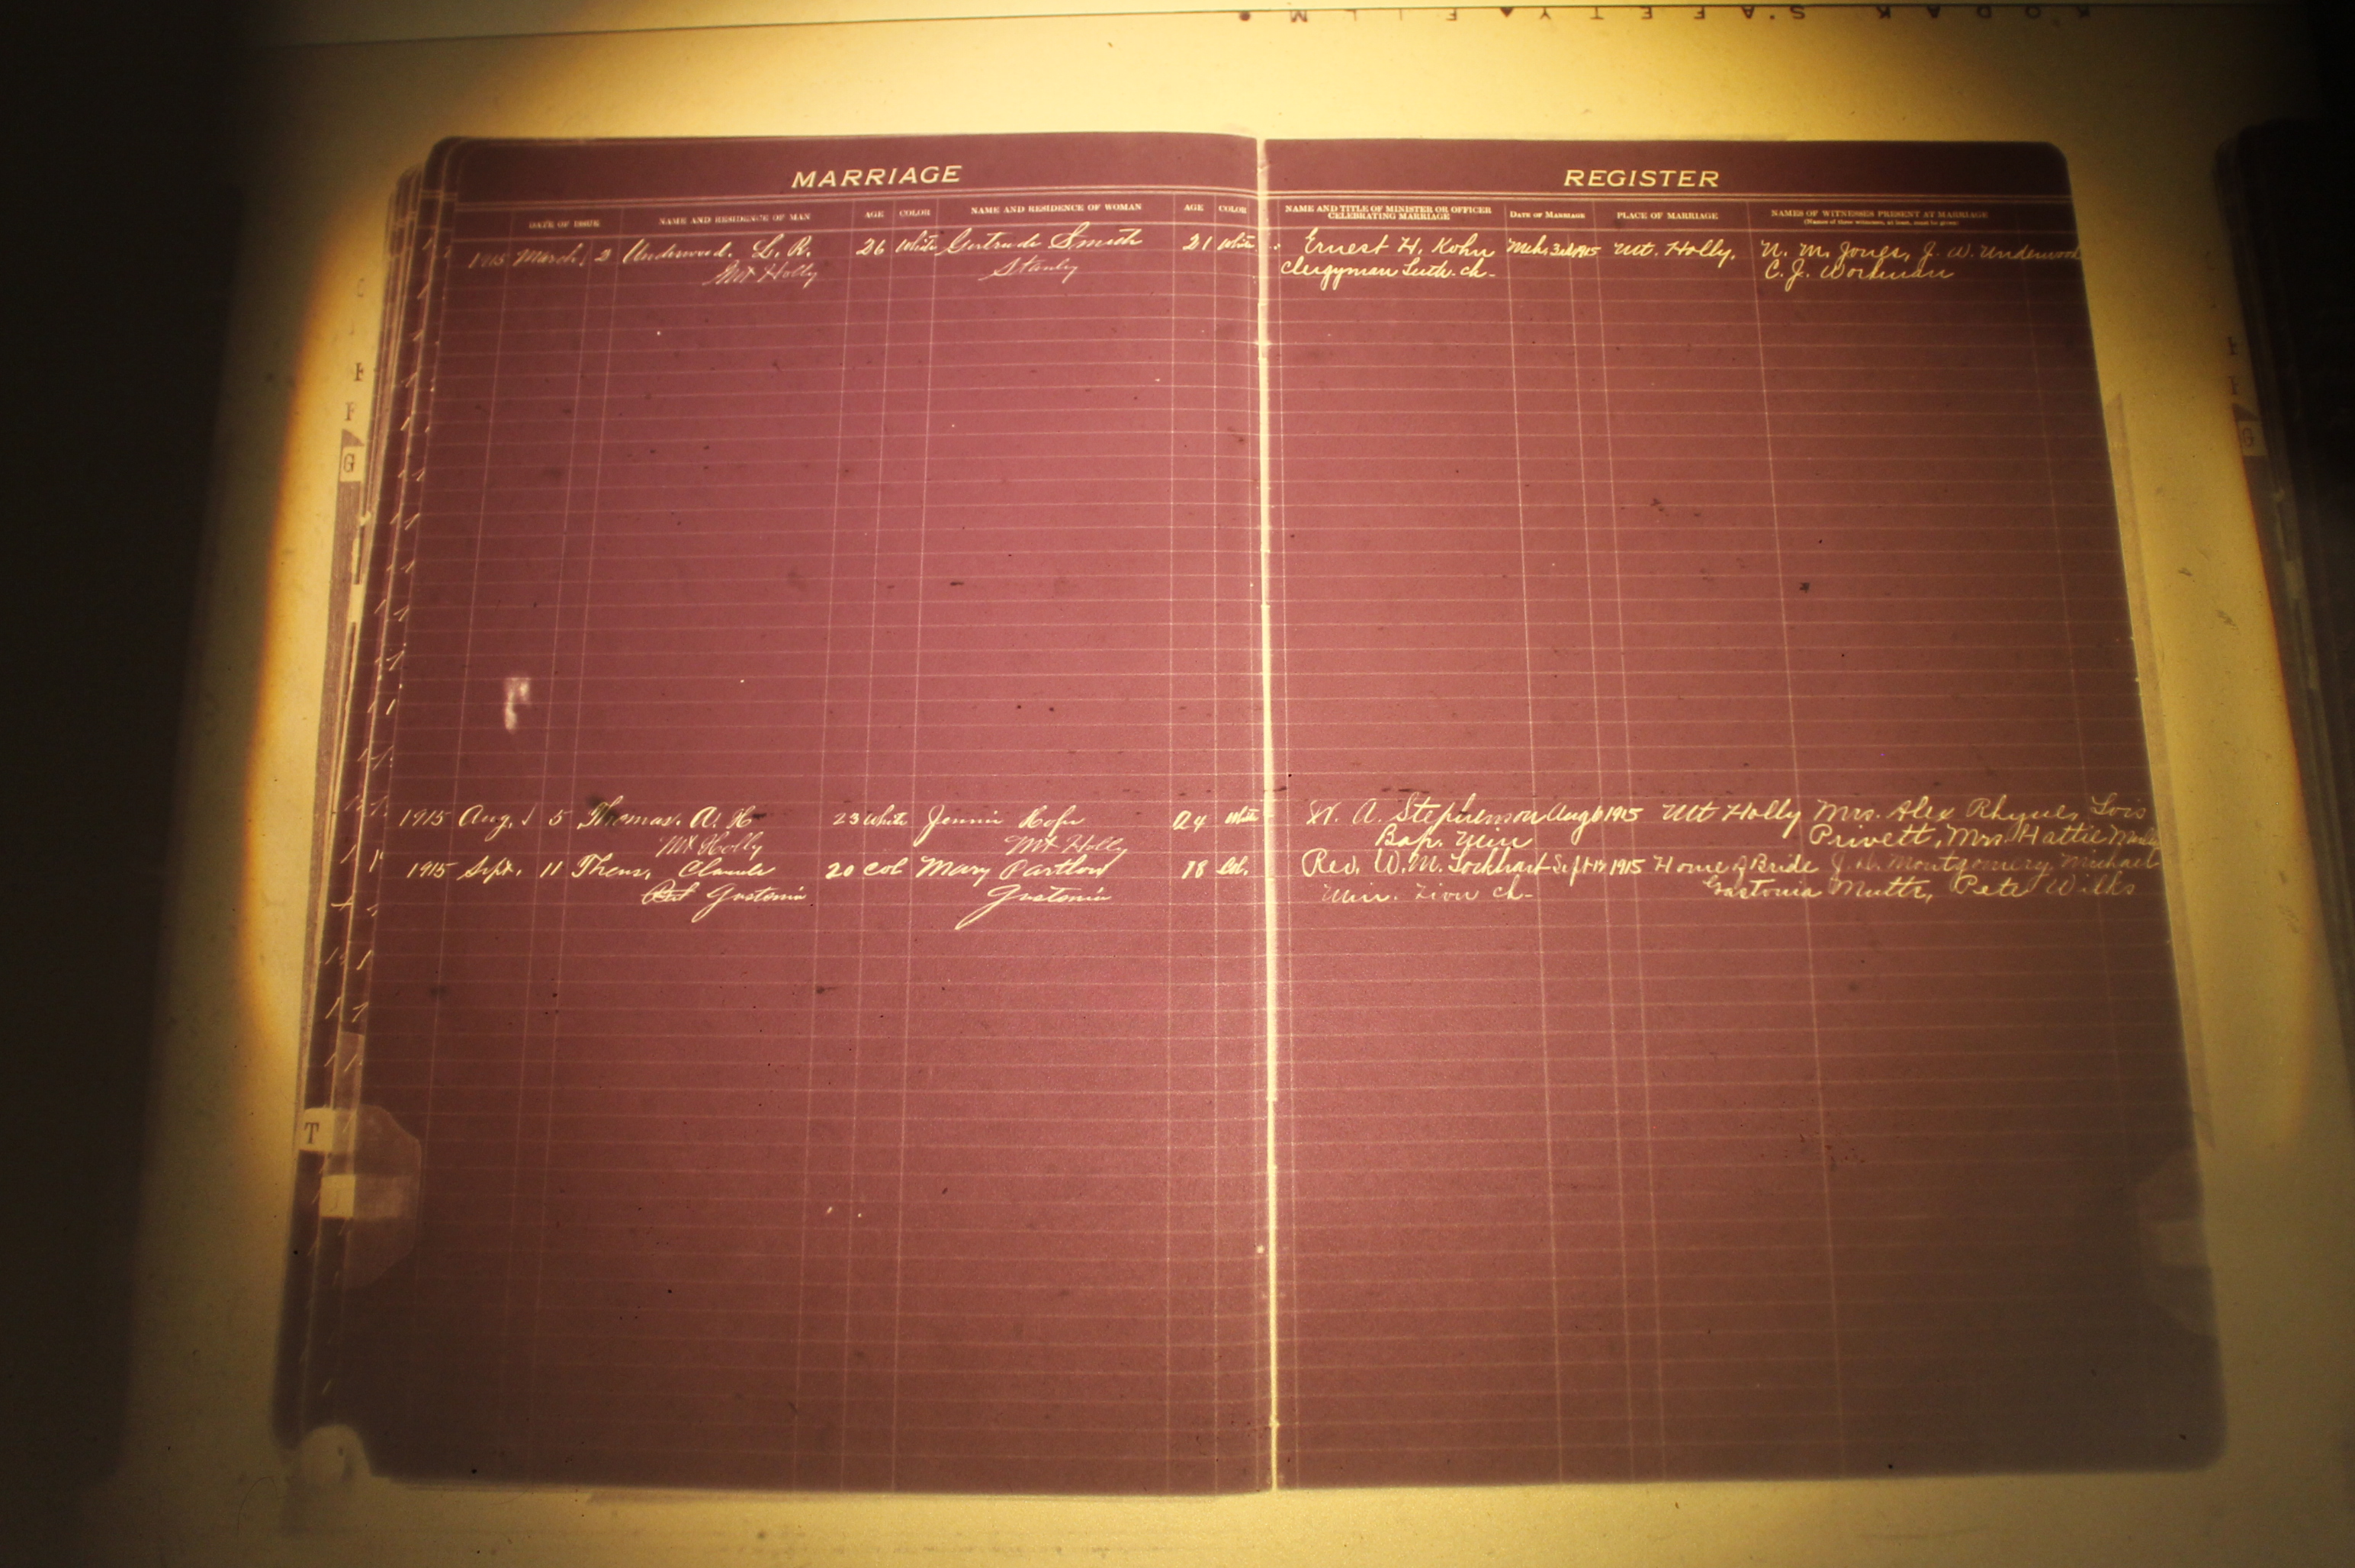 KODAK SAFETY FILM
MARRIAGE REGISTER
DATE OF ISSUE NAME AND RESIDENCE OF MAN AGE COLOR NAME AND RESIDENCE OF WOMAN AGE COLOR NAME AND TITLE OF MINISTER OR OFFICER CELEBRATING MARRIAGE DATE OF MARRIAGE PLACE OF MARRIAGE NAMES OF WITNESSES PRESENT AT MARRIAGE
(Names of three witnesses, at least, must be given)
1915 March 2 Underwood. L. R. 26 White Gertrude Smith 21 White Ernest H. Kohn Mch. 3rd 1915 Mt. Holly. N. M. Jones, J. W. Underwood
Mt Holly Stanly Clergyman Luth. ch. C. J. Workman
1915 Aug. 5 Thomas. A. H 23 White Jennie Hope 24 White W. A. Stephenson Aug 6 1915 Mt Holly Mrs. Alex Rhyne, Lois
Mt Holly Mt Holly Bap. Min Privett, Mrs. Hattie
1915 Sept. 11 Thom, Claude 20 Col Mary Partlow 18 Col. Rev. W. M. Lockhart Sept 1915 Home of Bride Montgomery Michael
Gastonia Gastonia Min. Zion Ch- Gastonia Pete Wilks
F
G
T